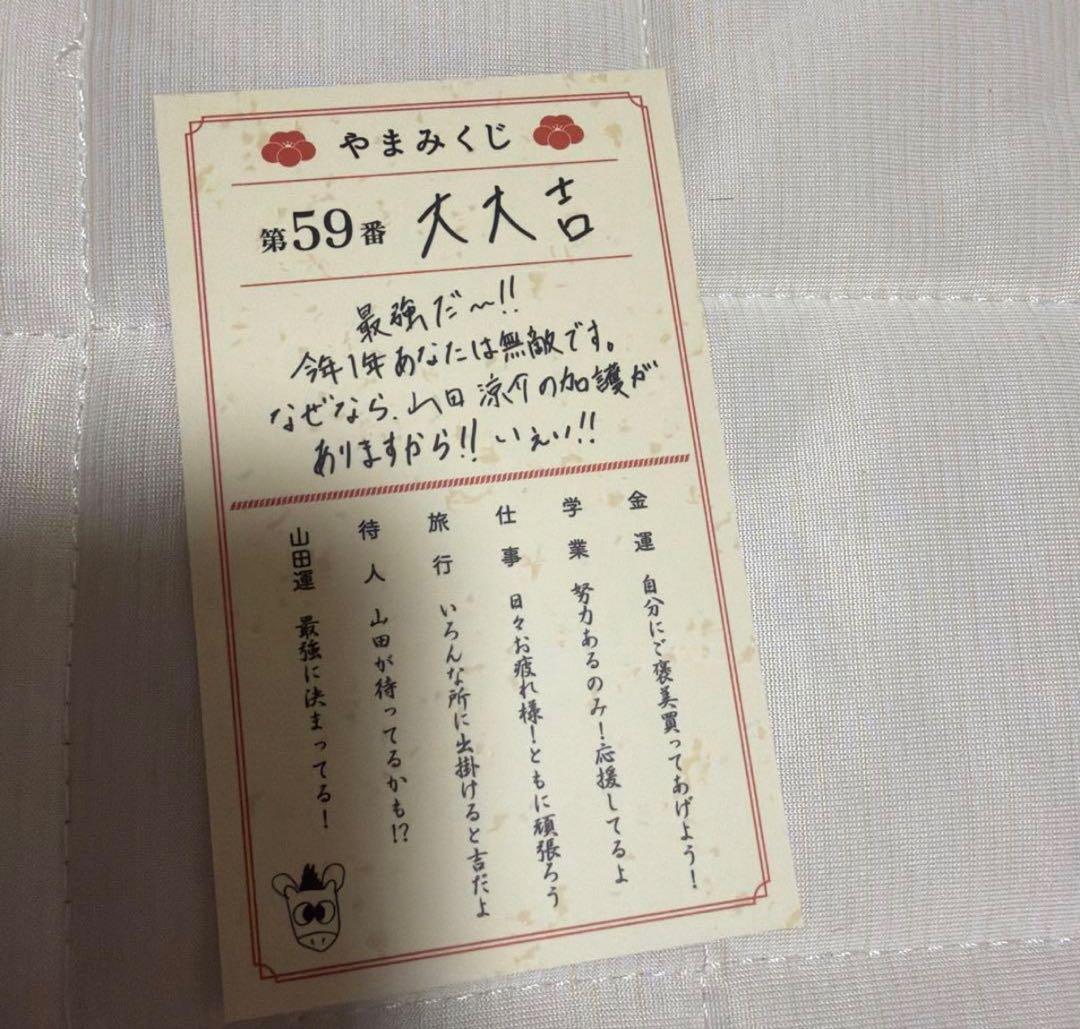 やまみくじ
第59番 大大吉
最強だ〜!!
今年1年あなたは無敵です。
なぜなら、山田涼介の加護が
ありますから!! いぇい!!
金運 自分にご褒美買ってあげよう!
学業 努力あるのみ!応援してるよ
仕事 日々お疲れ様!ともに頑張ろう
旅行 いろんな所に出掛けると吉だよ
待人 山田が待ってるかも!?
山田運 最強に決まってる!